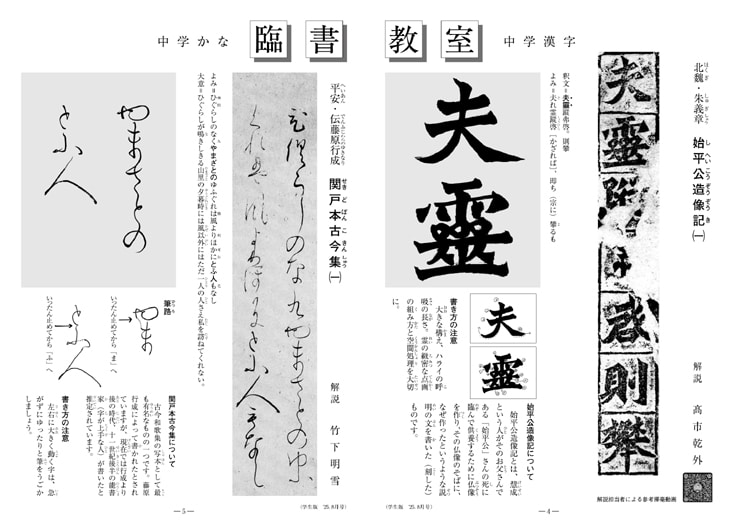 中学かな 臨書教室 中学漢字
北魏・朱義章 始平公造像記㈠
解説 髙市乾外
解説担当者による参考揮毫動画
夫靈
啓則攀
釈文=夫靈蹤弗啓。則攀
夫靈
夫
靈
始平公造像記について
始平公造像記とは、慧成
という人がそのお父さんで
ある「始平公」さんの死に
臨んで供養するために仏像
を作り、その仏像のそばに、
なぜ作ったというような説
明の文を書いた(刻した)
ものです。
書き方の注意
大きな構え、ハライの呼
吸の長さ。霊の緻密な点画
の組み方と空間処理を大切
に。
(学生版 '25.8月号)
―4―
平安・伝藤原行成 関戸本古今集㈠
解説 竹下明雪
よみ=ひぐらしのなくやまざとのゆふぐれは風よりほかにとふ人もなし
大意=ひぐらしが鳴きしきる山里の夕暮時には風以外にはただ一人の人さえ私を訪ねてくれない。
やまさとの
とふ人
筆路
やま
いったん止めてから「ま」へ
とふ人
いったん止めてから「ふ」へ
関戸本古今集について
古今和歌集の写本として最
も有名なものの一つです。藤原
行成によって書かれたとされ
ていますが、現在では行成より
後の時代、十一世紀後半の能書
家(字が上手な人)が書いたと
推定されています。
書き方の注意
左右に大きく動く字は、急
がずにゆったりと筆をうごか
しましょう。
(学生版 '25.8月号)
―5―